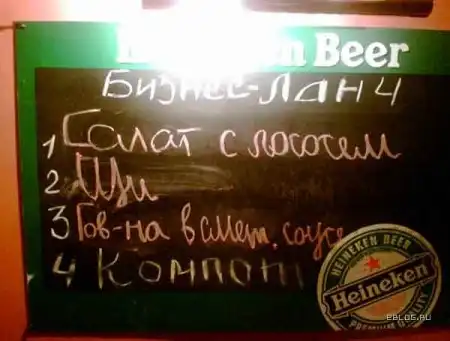 Heineken Beer
Бизнес-Ланч
1 Салат с лососем
2 Щи
3 Гов-на в смет. соусе
4 Компот
HEINEKEN BEER
Heineken
PREMIUM QUALITY
EBLOG.RU